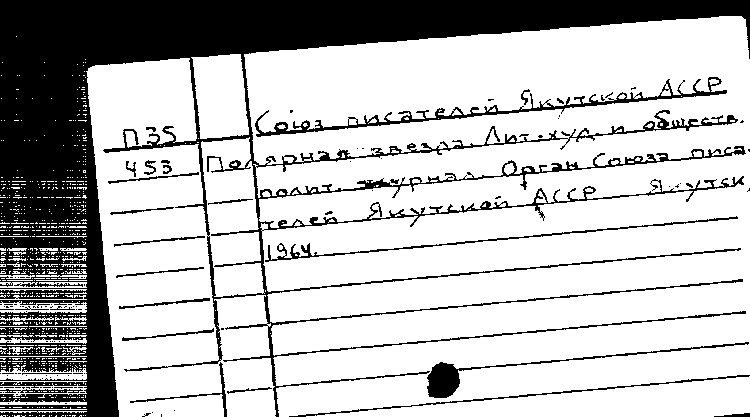 П35 Союз писателей Якутской АССР
453 Полярная звезда. Лит.-худ. и обществ.
полит. журнал. Орган Союза писа-
телей Якутской АССР Якутск,
1964.